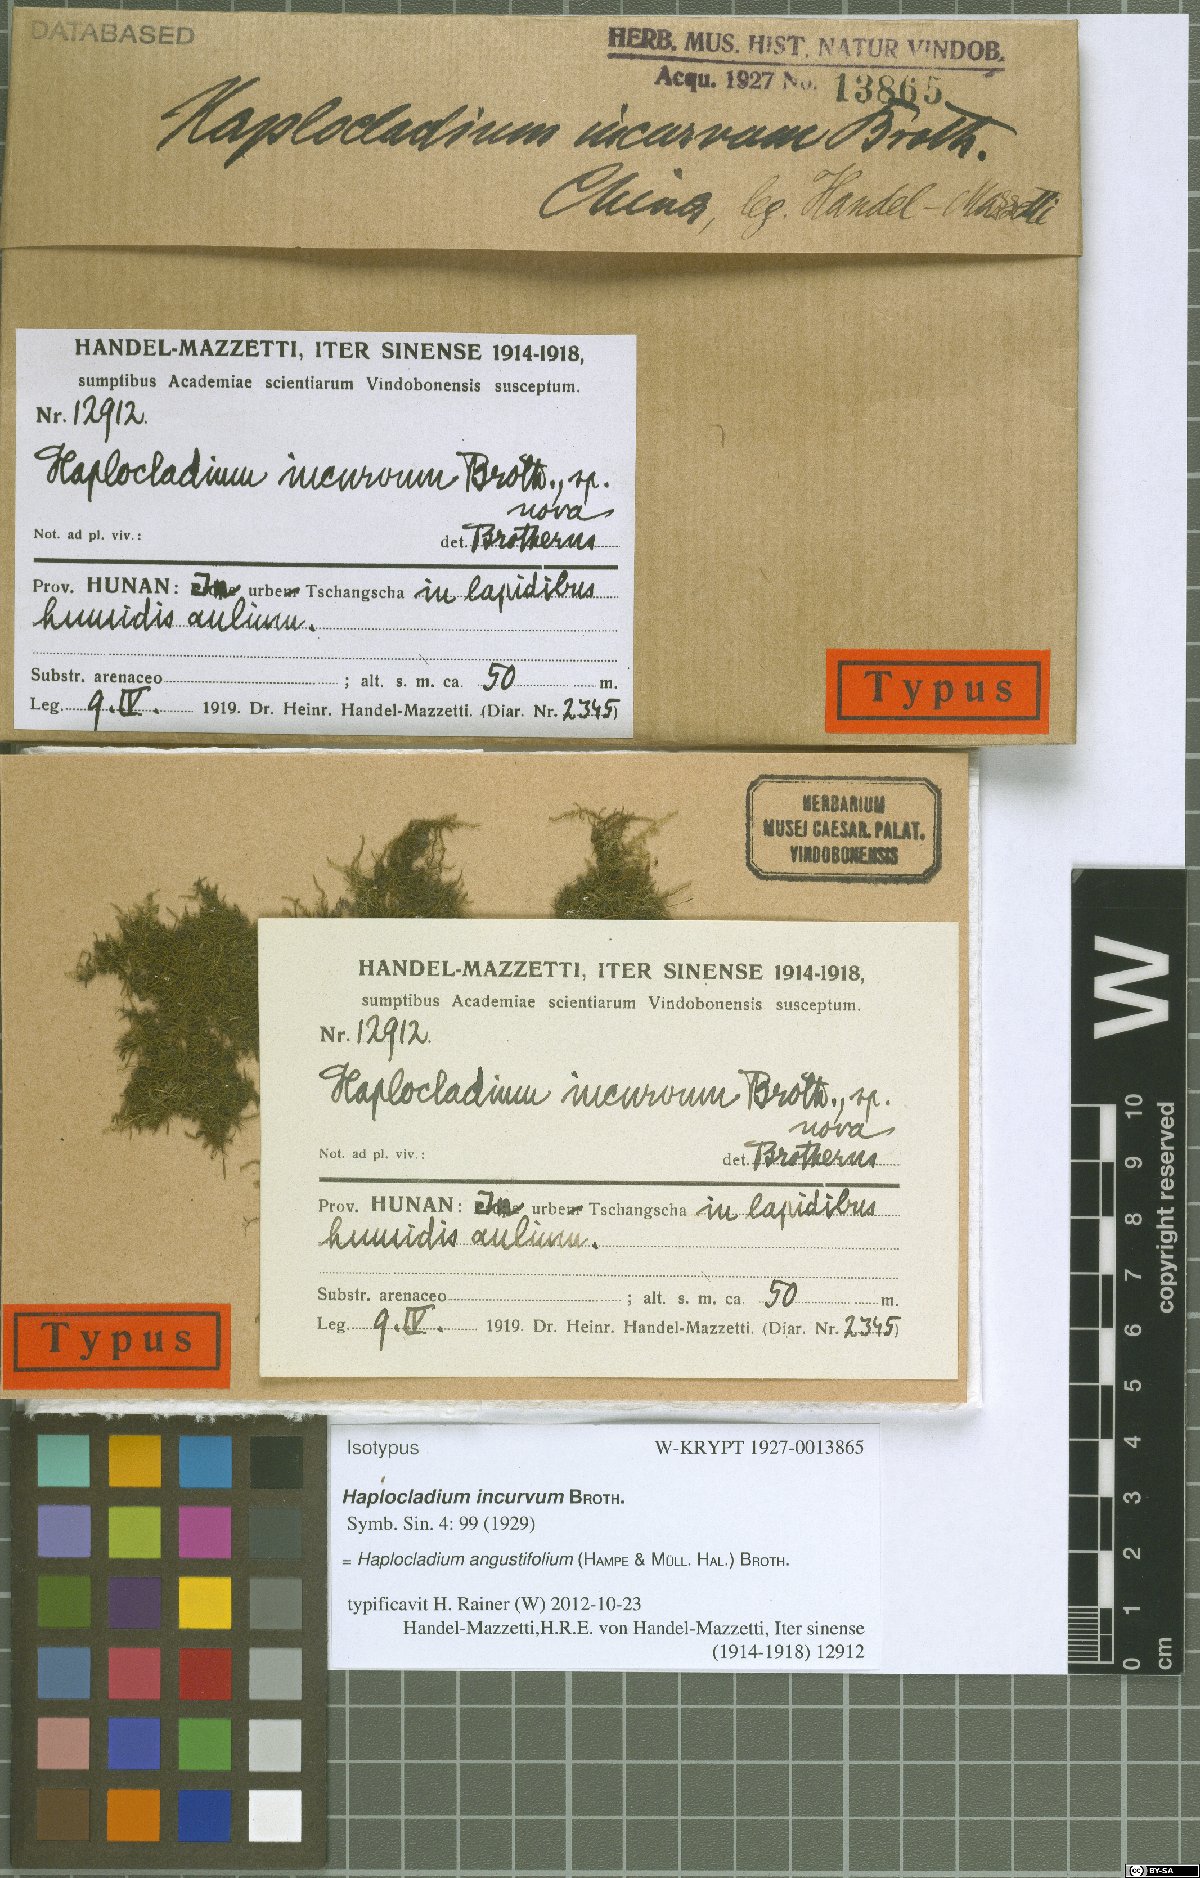 DATABASED
HERB. MUS. HIST. NATUR VINDOB.
Acqu. 1927 No. 13865
Haplocladium incurvum Broth.
China, leg. Handel-Mazzetti
HANDEL-MAZZETTI, ITER SINENSE 1914-1918,
sumptibus Academiae scientiarum Vindobonensis susceptum.
Nr. 12912.
Haplocladium incurvum Broth., sp.
nova
Not. ad pl. viv.: det. Brotherus
Prov. HUNAN: In urbe Tschangscha in lapidibus
humidis aulium.
Substr. arenaceo ; alt. s. m. ca. 50 m.
Leg. 9. IV. 1919. Dr. Heinr. Handel-Mazzetti. (Diar. Nr. 2345)
Typus
HERBARIUM
MUSEI CAESAR. PALAT.
VINDOBONENSIS
HANDEL-MAZZETTI, ITER SINENSE 1914-1918,
sumptibus Academiae scientiarum Vindobonensis susceptum.
Nr. 12912.
Haplocladium incurvum Broth., sp.
nova
Not. ad pl. viv.: det. Brotherus
Prov. HUNAN: In urbe Tschangscha in lapidibus
humidis aulium.
Substr. arenaceo ; alt. s. m. ca. 50 m.
Leg. 9. IV. 1919. Dr. Heinr. Handel-Mazzetti. (Diar. Nr. 2345)
Typus
Isotypus W-KRYPT 1927-0013865
Haplocladium incurvum BROTH.
Symb. Sin. 4: 99 (1929)
= Haplocladium angustifolium (HAMPE & MÜLL. HAL.) BROTH.
typificavit H. Rainer (W) 2012-10-23
Handel-Mazzetti,H.R.E. von Handel-Mazzetti, Iter sinense
(1914-1918) 12912
W
0 1 2 3 4 5 6 7 8 9 10
cm
copyright reserved
cc BY-SA